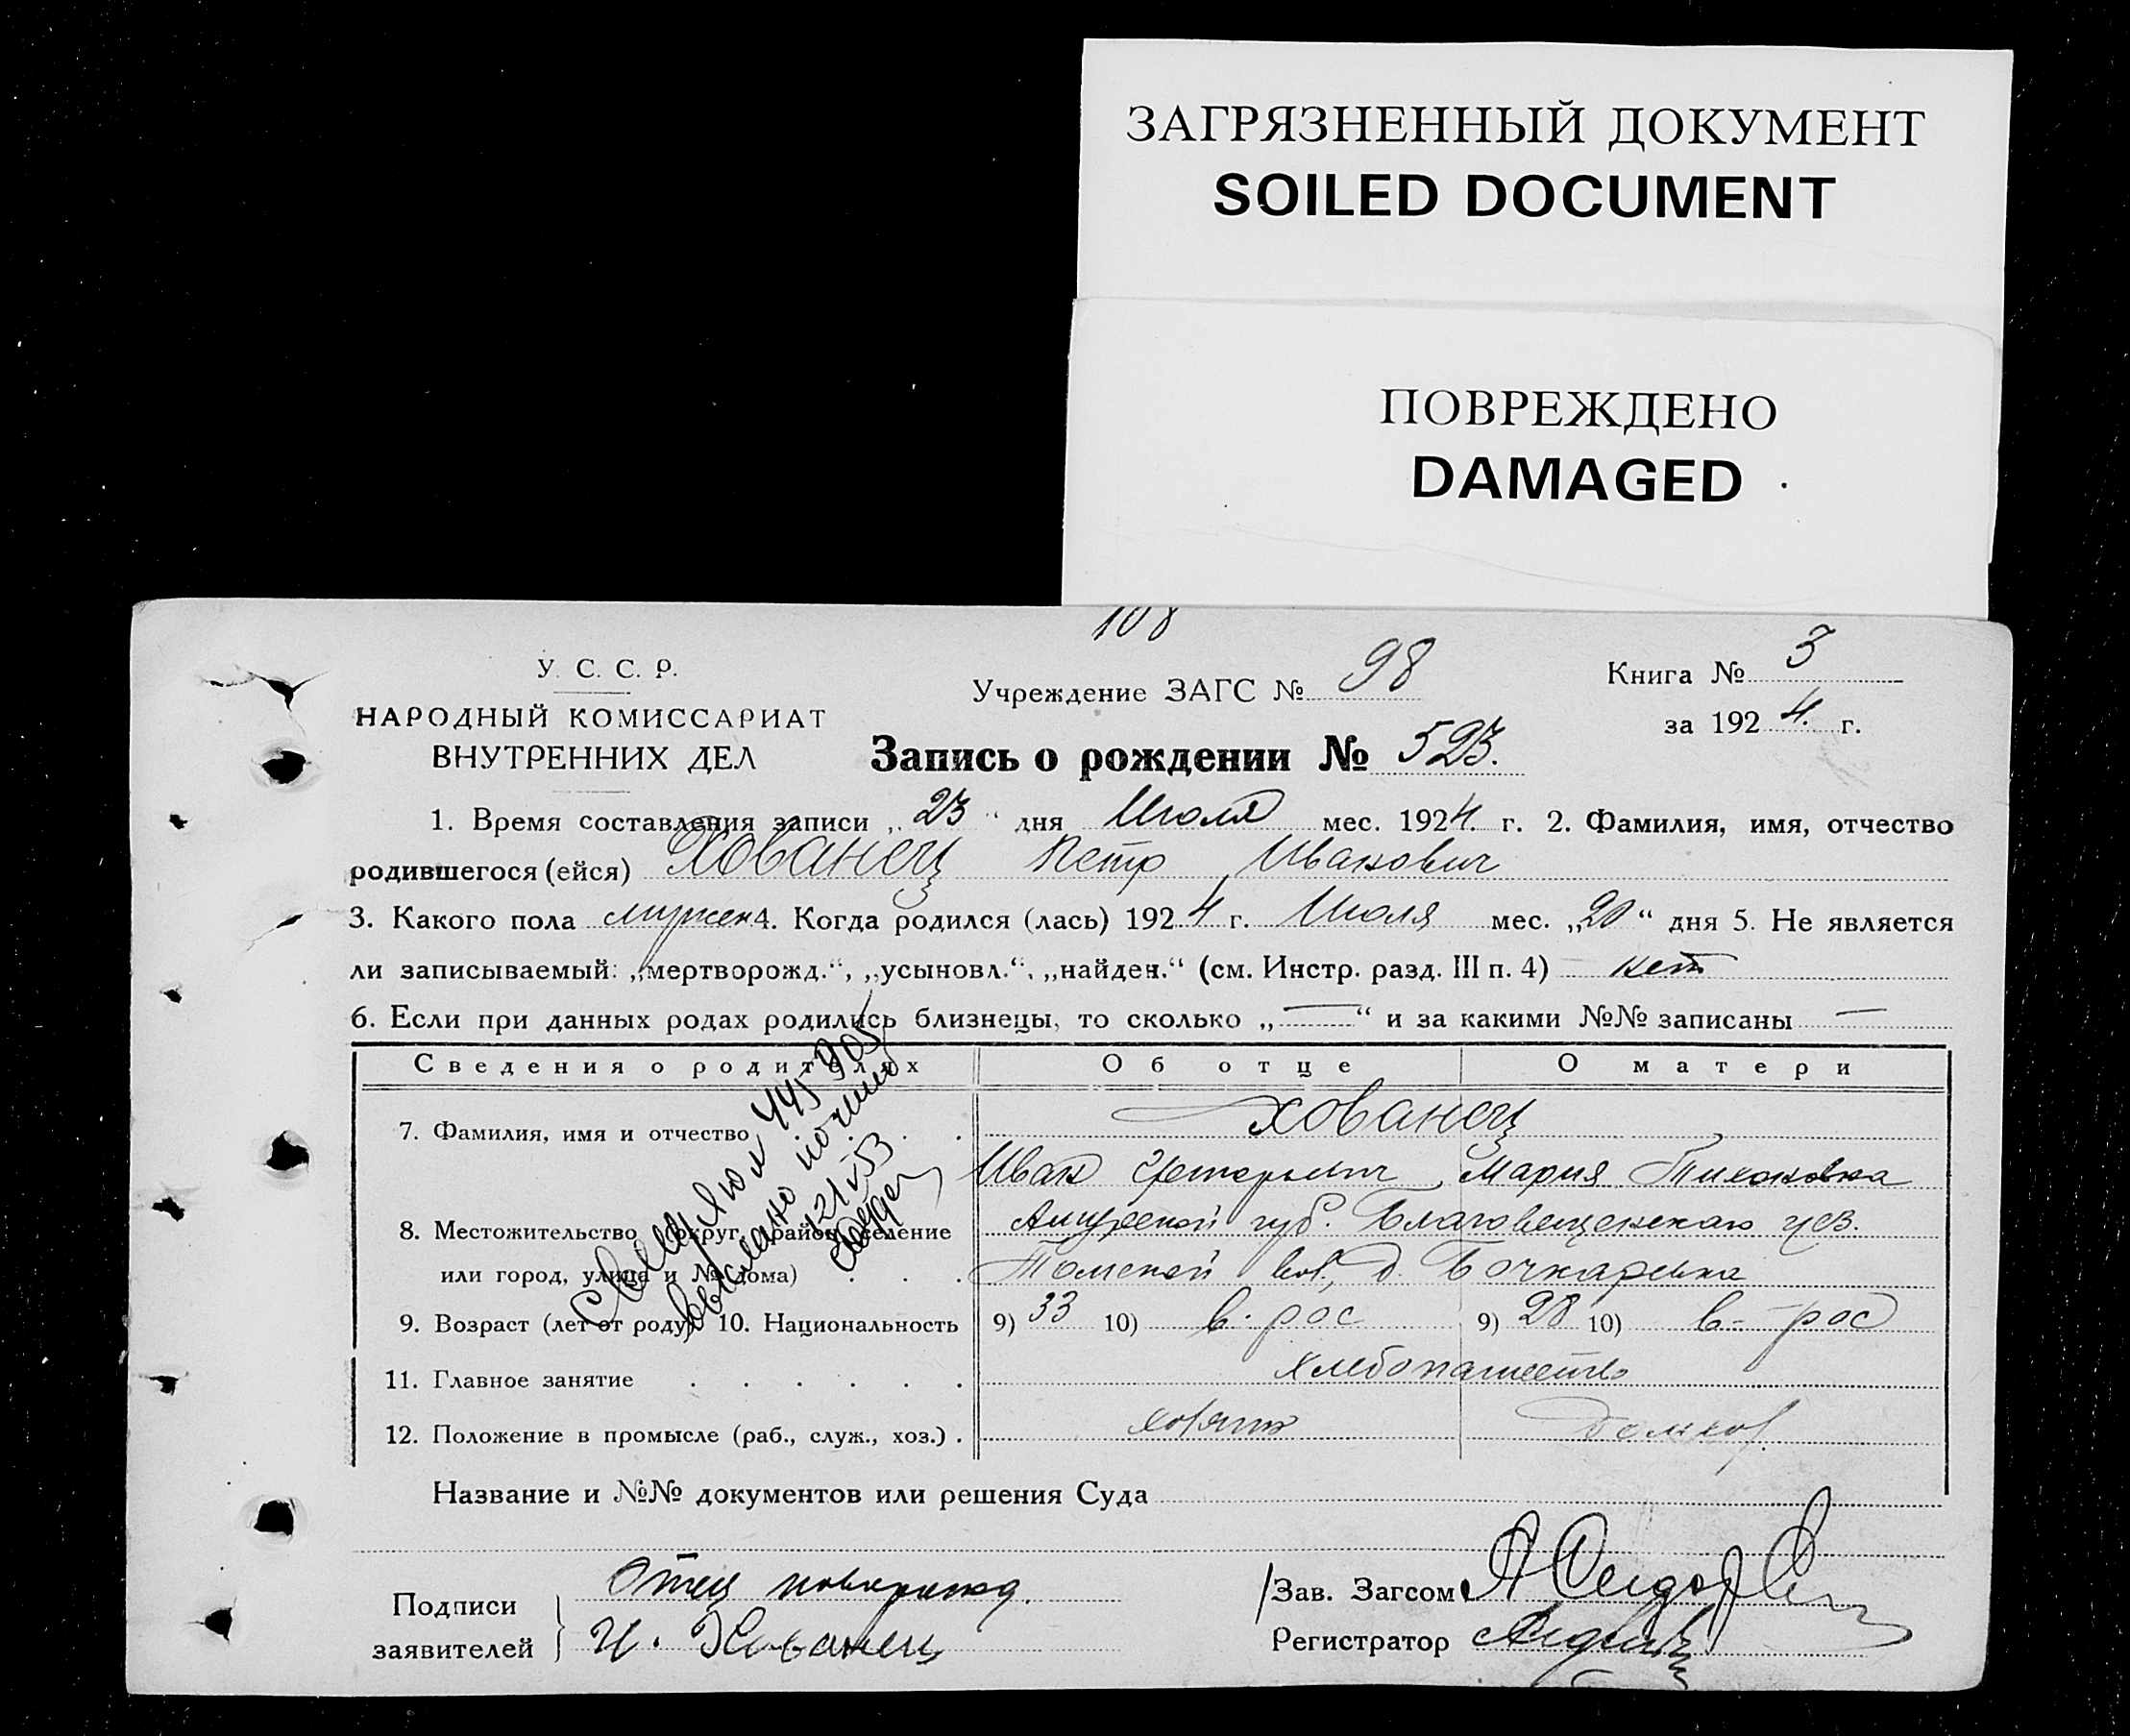 ЗАГРЯЗНЕННЫЙ ДОКУМЕНТ
SOILED DOCUMENT
ПОВРЕЖДЕНО
DAMAGED
108
У. С. С. Р.
НАРОДНЫЙ КОМИССАРИАТ
ВНУТРЕННИХ ДЕЛ
Учреждение ЗАГС № 98
Книга № 3
за 1924. г.
Запись о рождении № 523.
1. Время составления записи „23“ дня Июля мес. 1924. г. 2. Фамилия, имя, отчество
родившегося (ейся) Хованец Петр Иванович
3. Какого пола мужск 4. Когда родился (лась) 1924 г. Июля мес. „20“ дня 5. Не является
ли записываемый: „мертворожд.“, „усыновл.“, „найден.“ (см. Инстр. разд. III п. 4) нет
6. Если при данных родах родились близнецы, то сколько „—“ и за какими №№ записаны —
Сведения о родителях Об отце О матери
7. Фамилия, имя и отчество Хованец
Иван Мария Тихоновна
8. Местожительство (округ, район, селение Амурской губ. Благовещенскаго уез.
или город, улица и № дома) Томской вол., д. Бочкаревка
9. Возраст (лет от роду) 10. Национальность 9) 33 10) в. рос 9) 28 10) в-рос
11. Главное занятие хлебопашество
12. Положение в промысле (раб., служ., хоз.) хозяин домхоз.
Название и №№ документов или решения Суда
Подписи заявителей
Отец
И. Хованец
Зав. Загсом
Регистратор